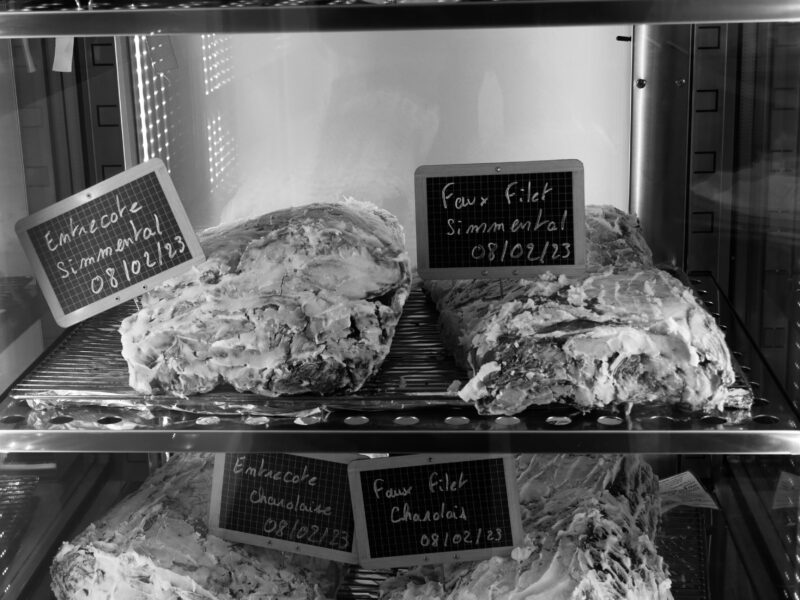 Entrecote
Simmental
08/02/23
Faux Filet
Simmental
08/02/23
Entrecote
Charolaise
08/02/23
Faux filet
Charolais
08/02/23